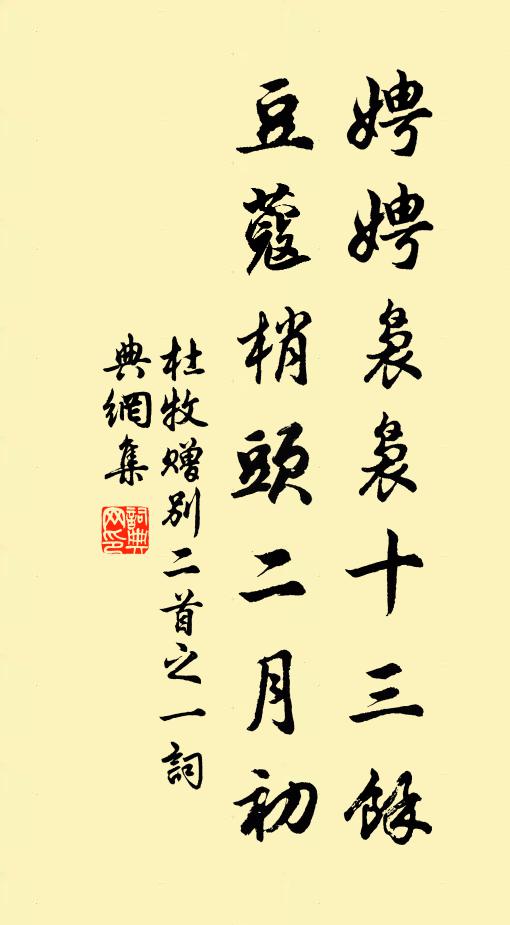 娉娉裊裊十三餘
豆蔻梢頭二月初
杜牧贈別二首之一詞
典網集
詞典
网印